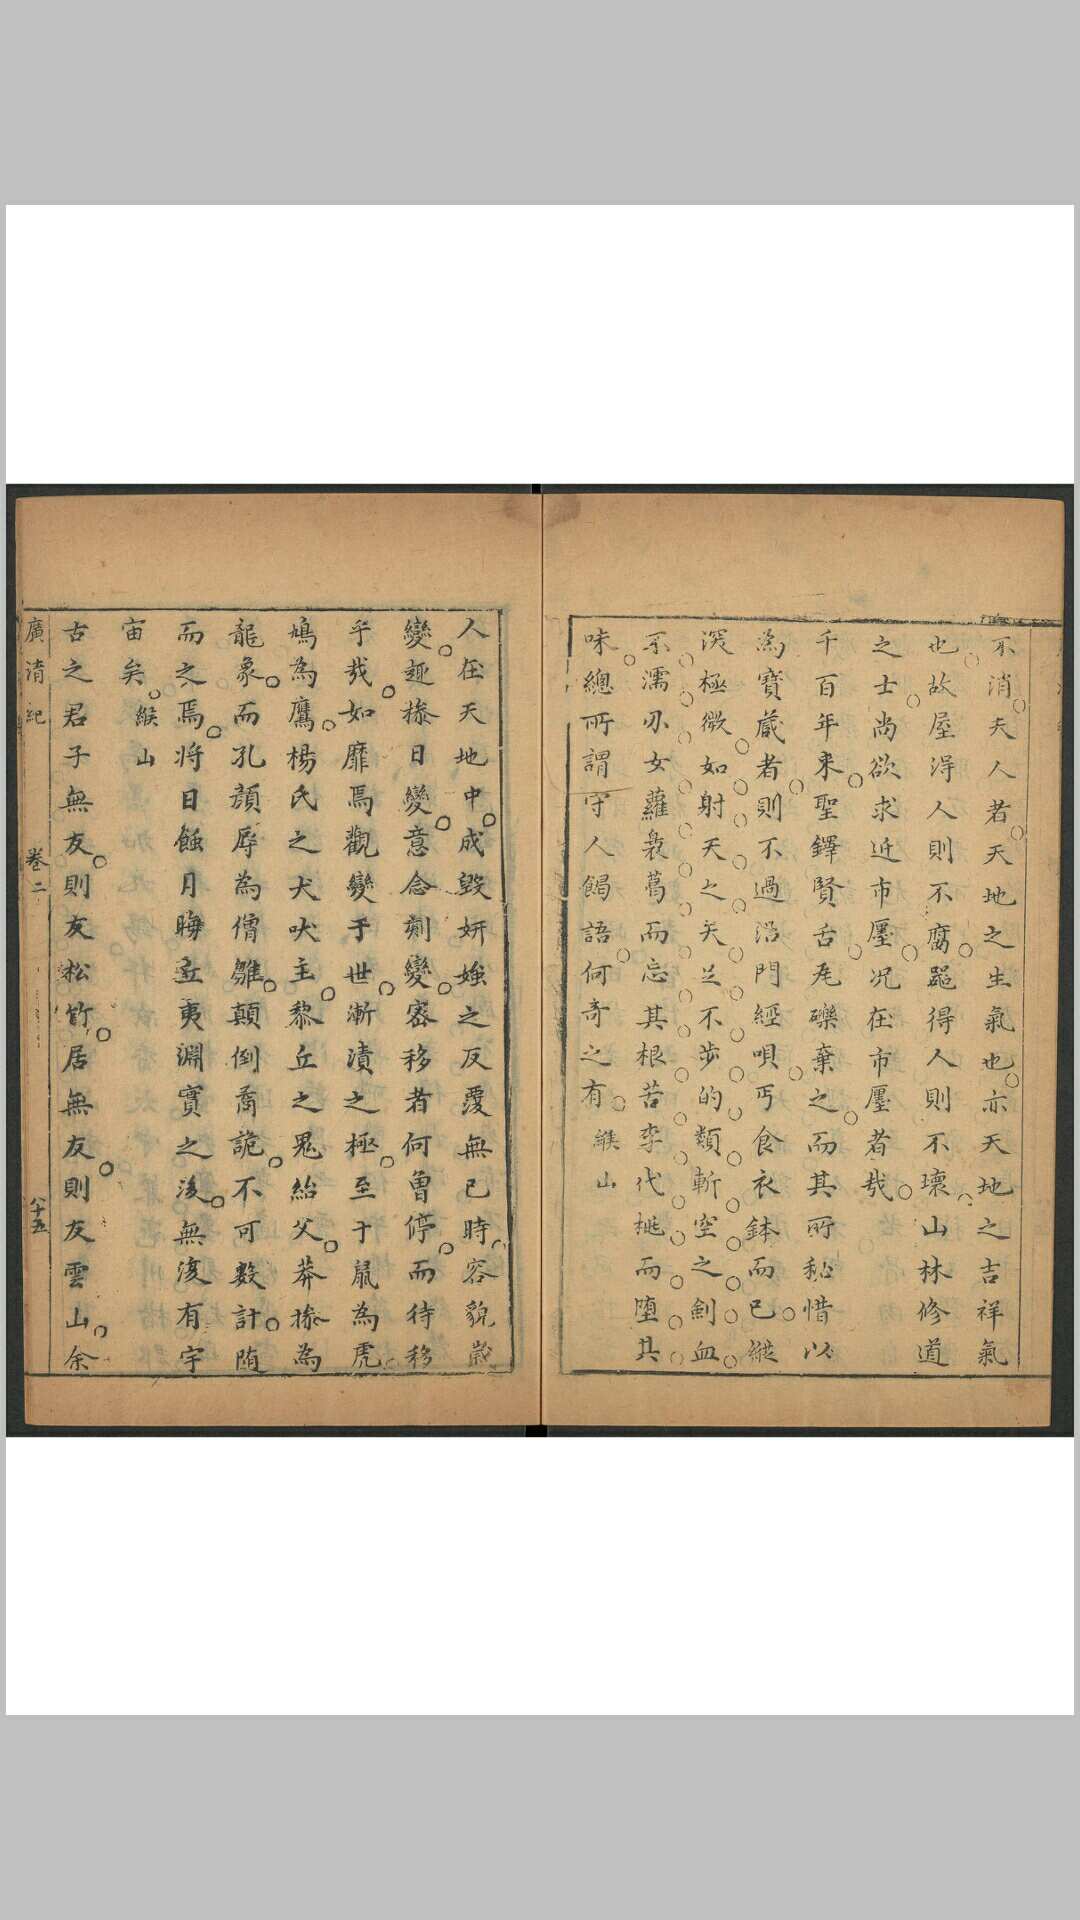 不消夫人者天地之生氣也亦天地之吉祥氣
也故屋得人則不腐蹈得人則不壞山林修道
之士尚欲求近市廛況在市廛者哉
千百年來聖鐸賢舌尾礫棄之而其所私惜以
為寶藏者則不過沿門經唄丐食衣鉢而已縱
深極微如射天之矢足不步的類斬空之劍血
不濡刃女蘿裊蔦而忘其根苦李代桃而墮其
味總所謂守人餲語何奇之有 緱山
人在天地中成毀妍媸之反覆無已時容貌歲
變趣操日變意念刻變密移者何曾停而待移
乎哉如靡焉觀變于世漸漬之極至于鼠為虎
鳩為鷹楊氏之犬吠主黎丘之鬼紿父莽操為
龍象而孔顏辱為儈雛顛倒矞詭不可數計隨
而之焉將日蝕月晦丘夷淵實之後無復有宇
宙矣 緱山
古之君子無友則友松竹居無友則友雲山余
廣清紀 卷二 八十五